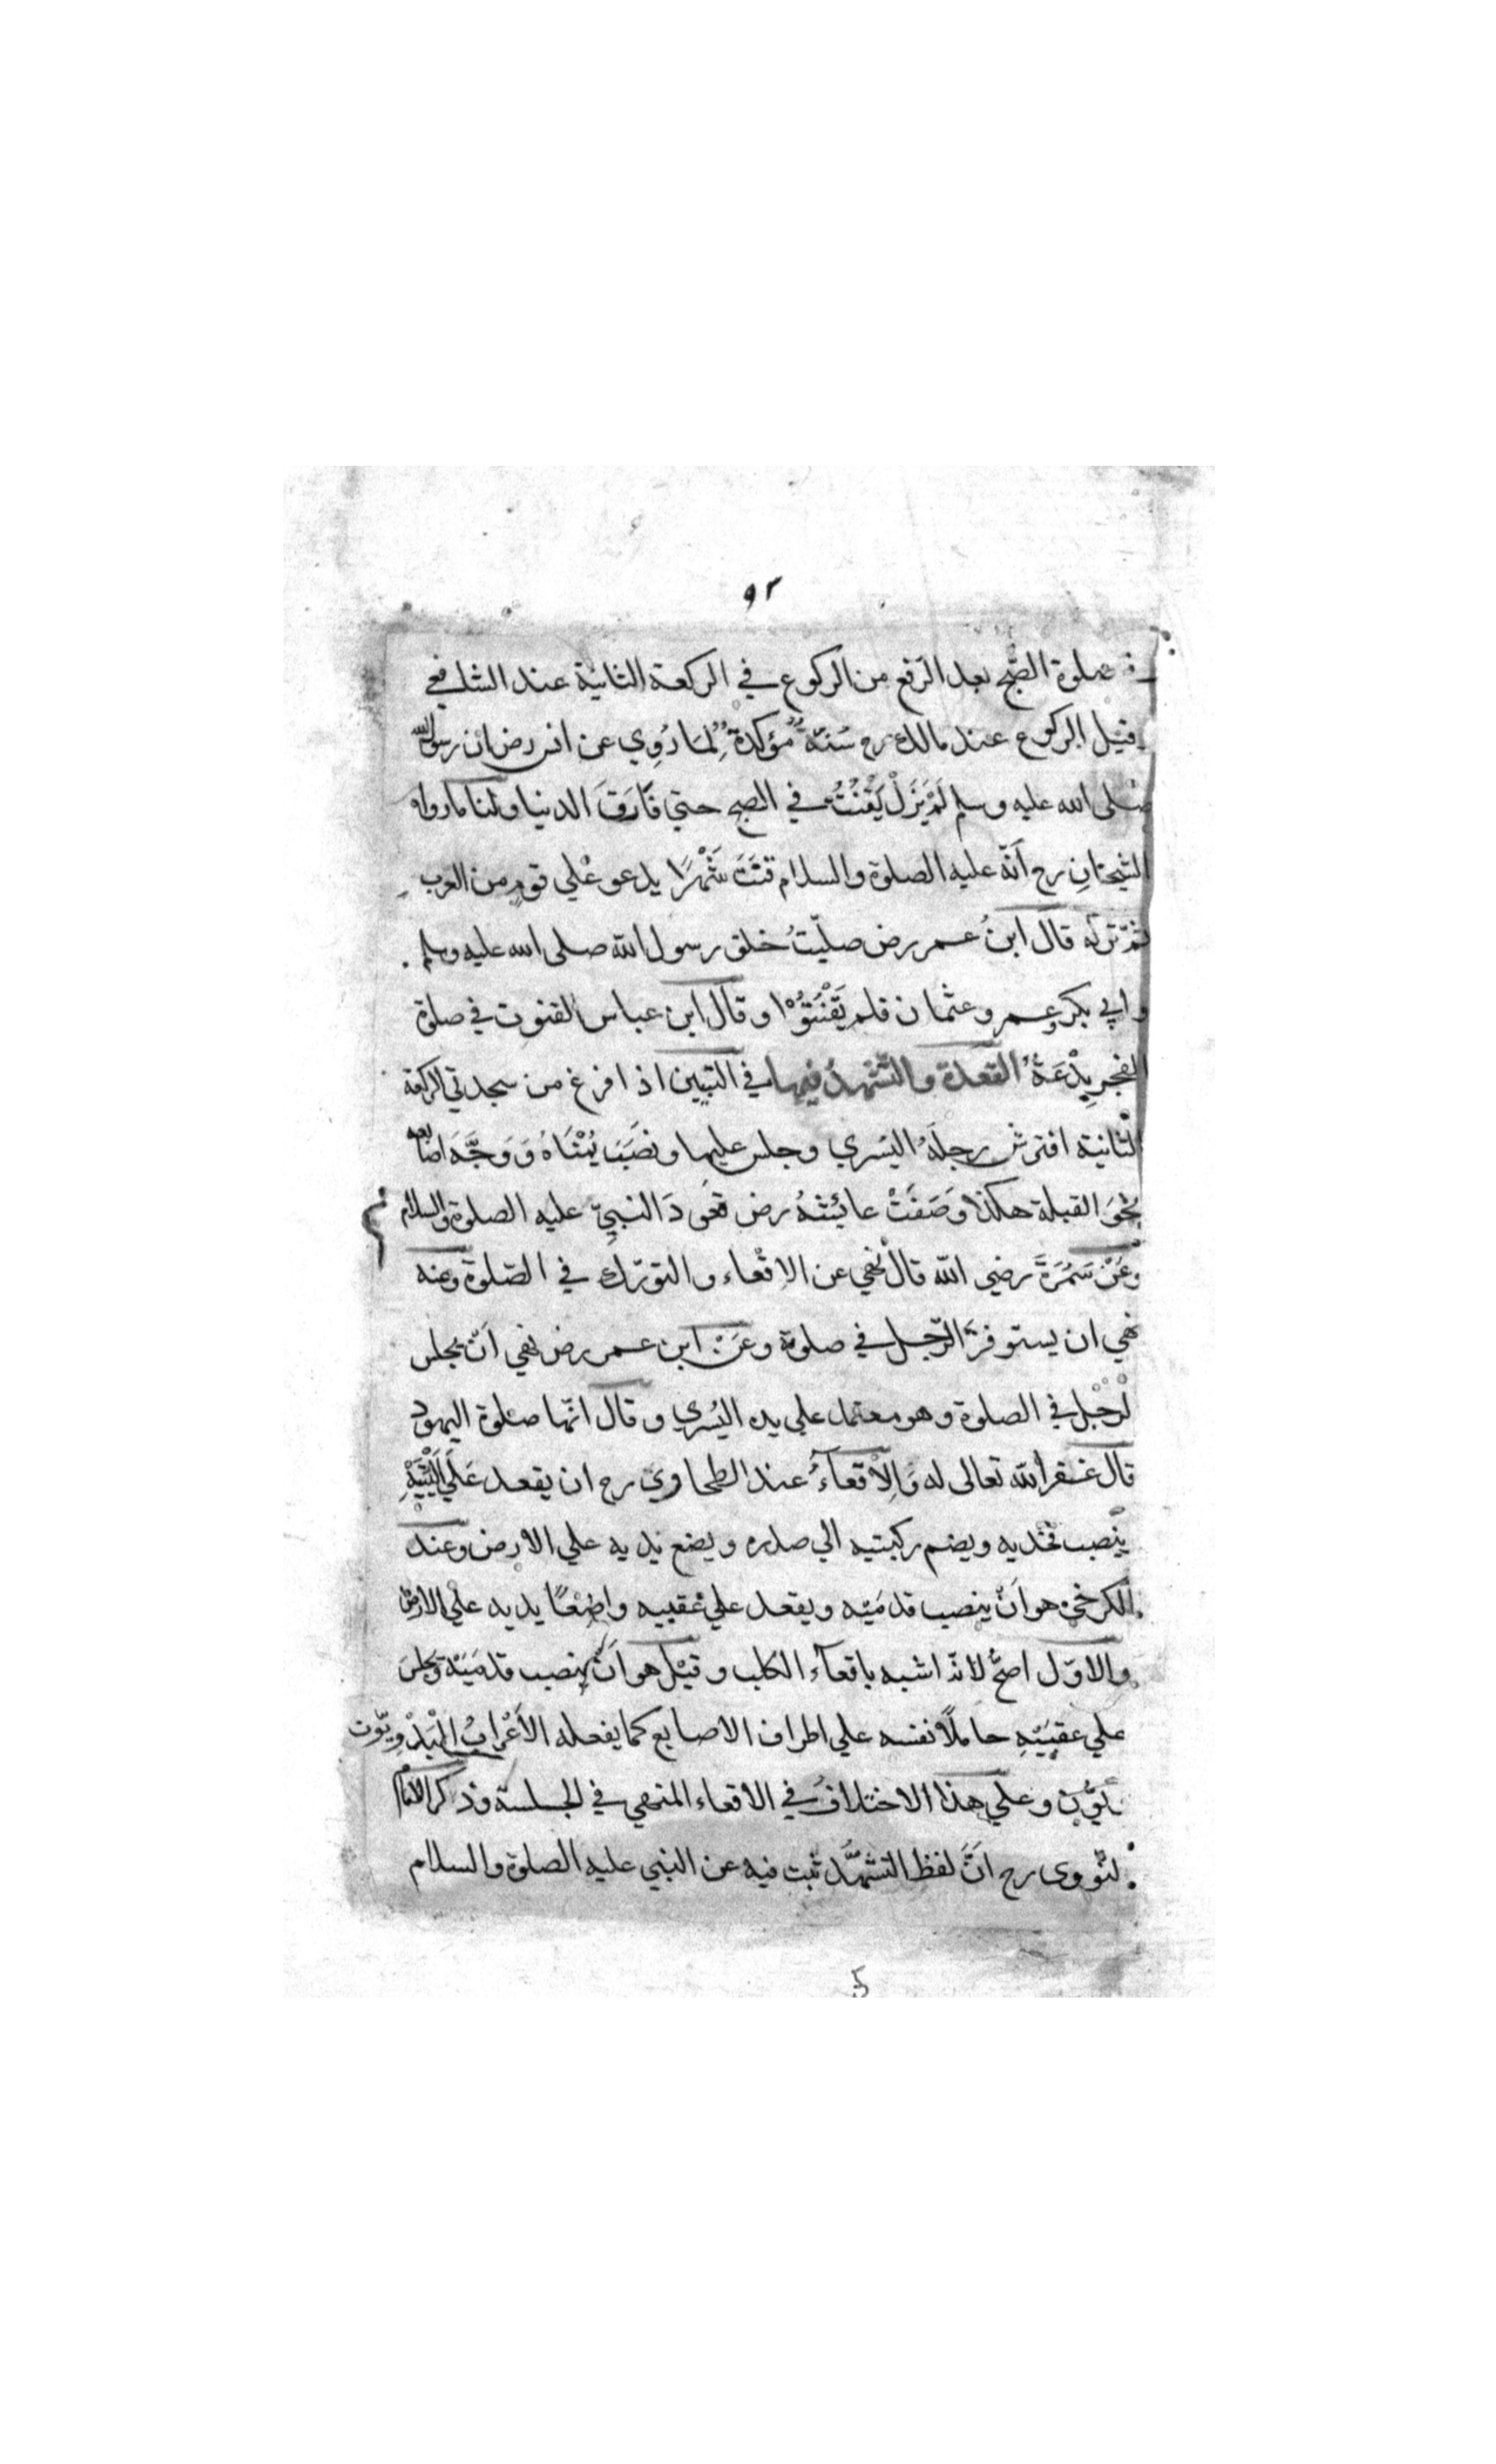 ٩٢
صلوة الصّبح بعد الرّفع من الركوع في الركعة الثانية عند الشافعي
قبل الركوع عند مالك رح سُنّةٌ مؤكدةٌ لِمَا رُوِي عن انس رض ان رسول الله
صلى الله عليه وسلم لَمْ يَزَلْ يَقْنُتُ في الصبح حتي فَارَقَ الدنيا ولنا ما رواه
الشيخانِ رح اَنّه عليه الصلوة والسلام قَنَتَ شَهْرًا يدعو علي قومٍ من العرب
ثمّ تركه قال ابنُ عمر رض صلّيتُ خلف رسول الله صلى الله عليه وسلم
وابي بكر وعمر وعثمان فلم يَقْنُتُوْا وقال ابن عباس القنوت في صلوة
الفجرِ بِدْعَةٌ القعدة والتّشهدُ فيها في التبيين اذا فرغ من سجدتي الركعة
الثانية افترش رجلَهُ اليُسري وجلس عليها ونصَبَ يُمْنَاهُ وَوَجَّهَ اصابعه
نحْوَ القبلة هكذا وَصَفَتْ عائشةُ رض قعُودَ النبيِّ عليه الصلوة والسلام
وَعَنْ سَمُرَةَ رضي الله قال نهي عن الاقْعاء والتورّك في الصّلوة وعنه
نهي ان يستوفز الرّجل في صلوة وعَنْ ابن عمر رض نهي اَنْ يجلس
لرجل في الصلوة وهو معتمد علي يده اليُسري وقال انّها صلوة اليهود
قال غفر الله تعالى له وَالِاْقعآءُ عند الطحاوي رح ان يقعد عَلَي اَلْيَتَيْهِ
ينْصب فخذيه ويضم ركبتيه الي صدره ويضع يديه علي الارض وعند
الكرخي هو اَنْ ينصب قدمَيْه ويقعد علي عقبيه واضِعًا يديه علي الارض
والاوّل اصحُّ لانّه اشبه باقعآء الكلب وقيْل هو اَنْ ينصب قدمَيْه ويجلس
علي عقبَيْهِ حاملًا نفسه علي اطراف الاصابع كما يفعله الأَعْرابُ الْبَدْوِيّون
وعلي هذا الاختلافُ في الاقعاء المنهي في الجلسة وذكر الامام
لنّووى رح اَنَّ لفظ التشهُّد ثبت فيه عن النبي عليه الصلوة والسلام